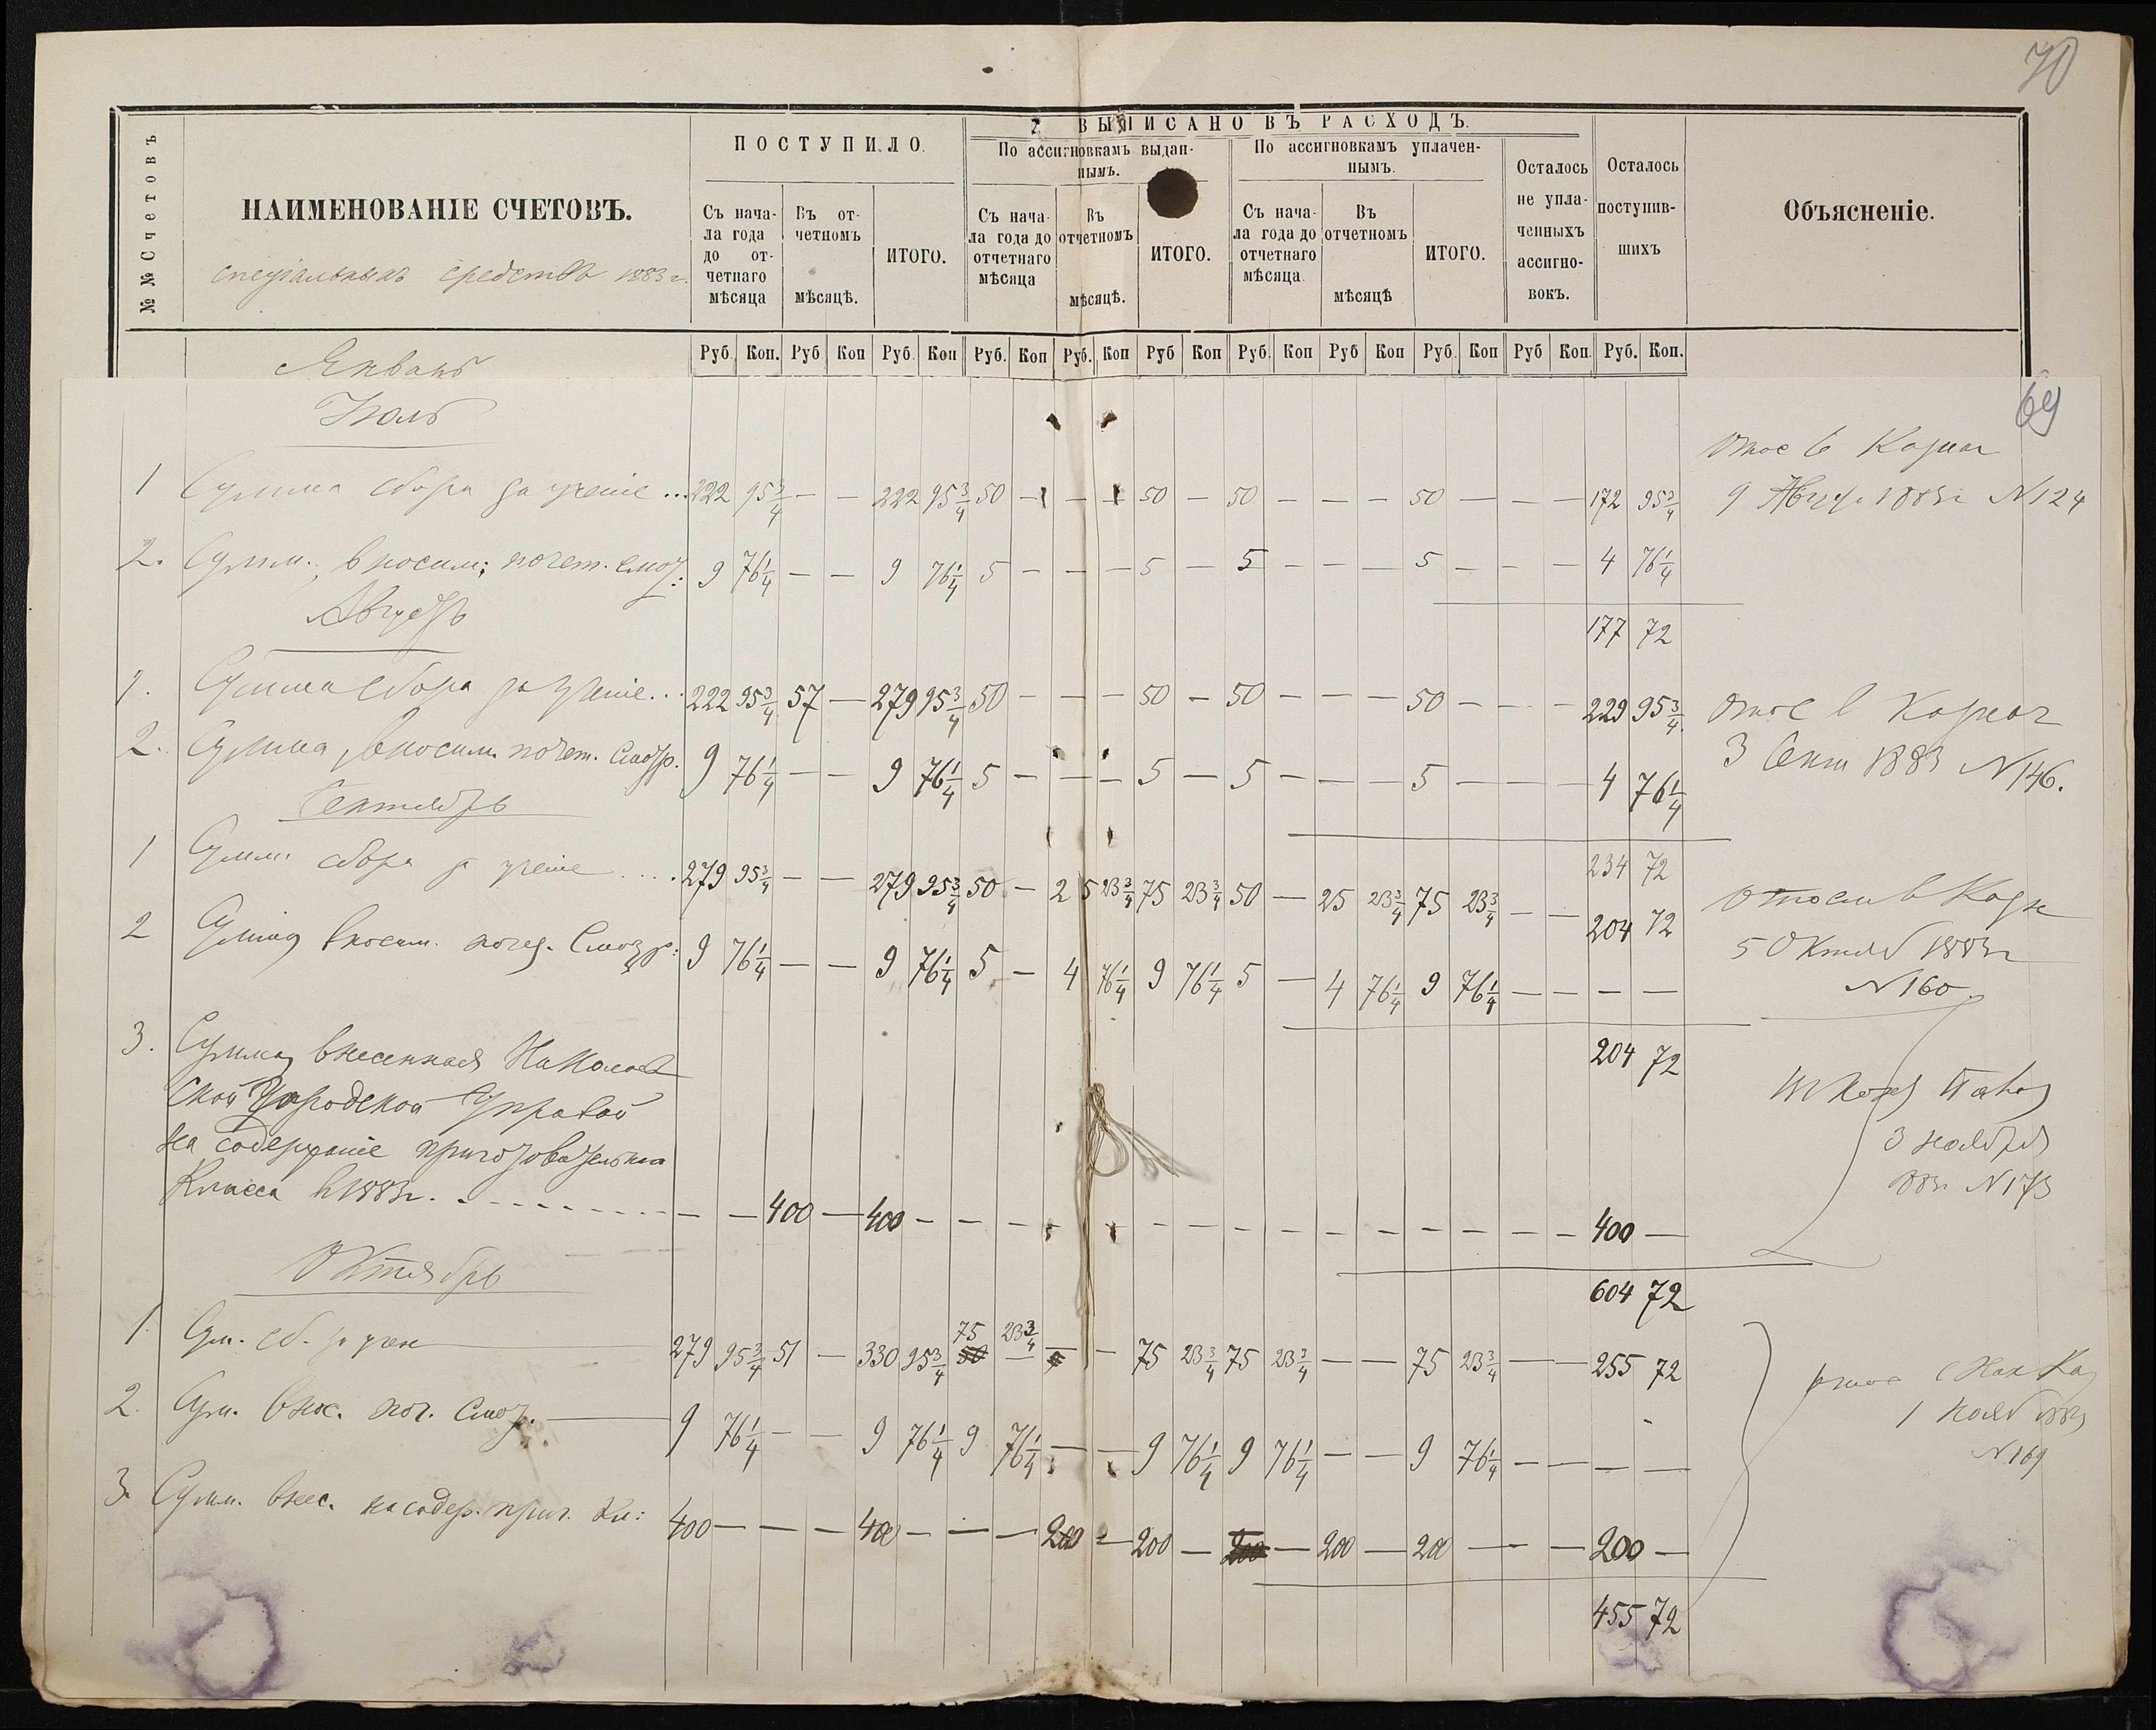 70
№ № Счетовъ
НАИМЕНОВАНІЕ СЧЕТОВЪ.
спеціальныхъ средствъ 1883 г.
ПОСТУПИЛО.
Съ нача-
ла года
до от-
четнаго
мѣсяца
Въ от-
четномъ
мѣсяцѣ.
ИТОГО.
ВЫПИСАНО ВЪ РАСХОДЪ.
По ассигновкамъ выдан-
нымъ.
Съ нача-
ла года до
отчетнаго
мѣсяца
Въ
отчетномъ
мѣсяцѣ.
ИТОГО.
По ассигновкамъ уплачен-
нымъ.
Съ нача-
ла года до
отчетнаго
мѣсяца.
Въ
отчетномъ
мѣсяцѣ
ИТОГО.
Осталось
не упла-
ченныхъ
ассигно-
вокъ.
Осталось
поступив-
шихъ
Объясненіе.
Руб. Коп. Руб Коп Руб. Коп Руб. Коп Руб. Коп Руб Коп Руб. Коп Руб Коп Руб. Коп Руб Коп. Руб. Коп.
Январь
69
Іюль
1 Сумма сбора за ученіе ... 222 95 3/4 — — 222 95 3/4 50 — — — 50 — 50 — — — 50 — — — 172 95 3/4
9 1883 г №124
2. Сумм. вносим; почет. смот: 9 76 1/4 — — 9 76 1/4 5 — — — 5 — 5 — — — 5 — — — 4 76 1/4
177 72
Августъ
1. Сумма сбора за ученіе... 222 95 3/4 57 — 279 95 3/4 50 — — — 50 — 50 — — — 50 — — — 229 95 3/4
2. Сумма, вносим. почет. Смотр. 9 76 1/4 — — 9 76 1/4 5 — — — 5 — 5 — — — 5 — — — 4 76 1/4
3 Сент 1883 №146.
234 72
Сентябрь
1 Сумм. сбора за ученіе .... 279 95 3/4 — — 279 95 3/4 50 — 25 23 3/4 75 23 3/4 50 — 25 23 3/4 75 23 3/4 — — 204 72
5 Октяб 1883 г
№160
2 Сумма вносим. почет. Смотр: 9 76 1/4 — — 9 76 1/4 5 — 4 76 1/4 9 76 1/4 5 — 4 76 1/4 9 76 1/4 — — — —
204 72
3. Сумма, внесенная
ской Городской Управой
на содержаніе приготовительна
Класса в 1883 г. — — 400 — 400 — — — — — — — — — — — — — — — 400 —
3 ноября
883 №173
604 72
Октябрь
1. Сум. сб. за учен 279 95 3/4 51 — 330 95 3/4 75 23 3/4 — — 75 23 3/4 75 23 3/4 — — 75 23 3/4 — — 255 72
2. Сум. внос. поч. Смот. 9 76 1/4 — — 9 76 1/4 9 76 1/4 — — 9 76 1/4 9 76 1/4 — — 9 76 1/4 — — — —
1 Нояб 1883
№169
3. Сумм. внес. на содер. приг. Кл: 400 — — — 400 — — — 200 — 200 — — — 200 — 200 — — — 200 —
455 72